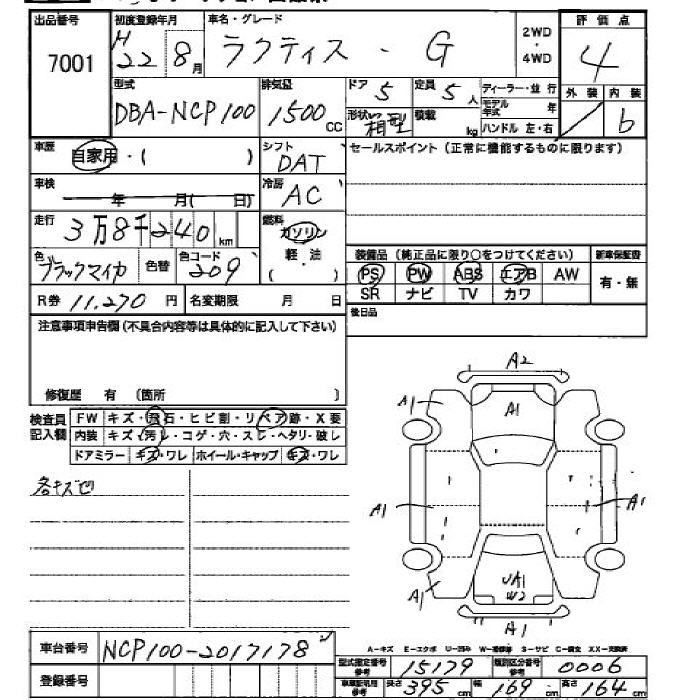 出品番号 初度登録年月 車名・グレード 2WD・4WD 評価点
7001 H22 8月 ラクティス・G 4
型式 排気量 ドア 定員 ディーラー・並行 外装 内装
DBA-NCP100 1500CC 5 5人 モデル年式 年 b
形状 箱型 積載 kg ハンドル 左・右
車歴 自家用・( ) シフト DAT セールスポイント(正常に機能するものに限ります)
車検 年 月( 日) 冷房 AC
走行 3万8千240km 燃料 ガソリン
軽・油
( ・ )
色 ブラックマイカ 色替 色コード 209 装備品(純正品に限り○をつけてください) 新車保証書
PS PW ABS エアB AW 有・無
R券 11,270円 名変期限 月 日 SR ナビ TV カワ
注意事項申告欄(不具合内容等は具体的に記入して下さい) 後日品
修復歴 有 (箇所 )
検査員記入欄 FW キズ・飛石・ヒビ割・リペア跡・X要
内装 キズ・汚レ・コゲ・穴・スレ・ヘタリ・破レ
ドアミラー キズ・ワレ ホイール・キャップ キズ・ワレ
各キズ也
A2
A1 A1
A1 A1
UA1
W2
A1
A1
A-キズ E-エクボ U-凹み W-補修跡 S-サビ C-腐食 XX-交換済
車台番号 NCP100-2017178
型式指定番号 参考 15179 類別区分番号 参考 0006
登録番号
車車記載用 参考 長さ 395cm 幅 169cm 高さ 164cm